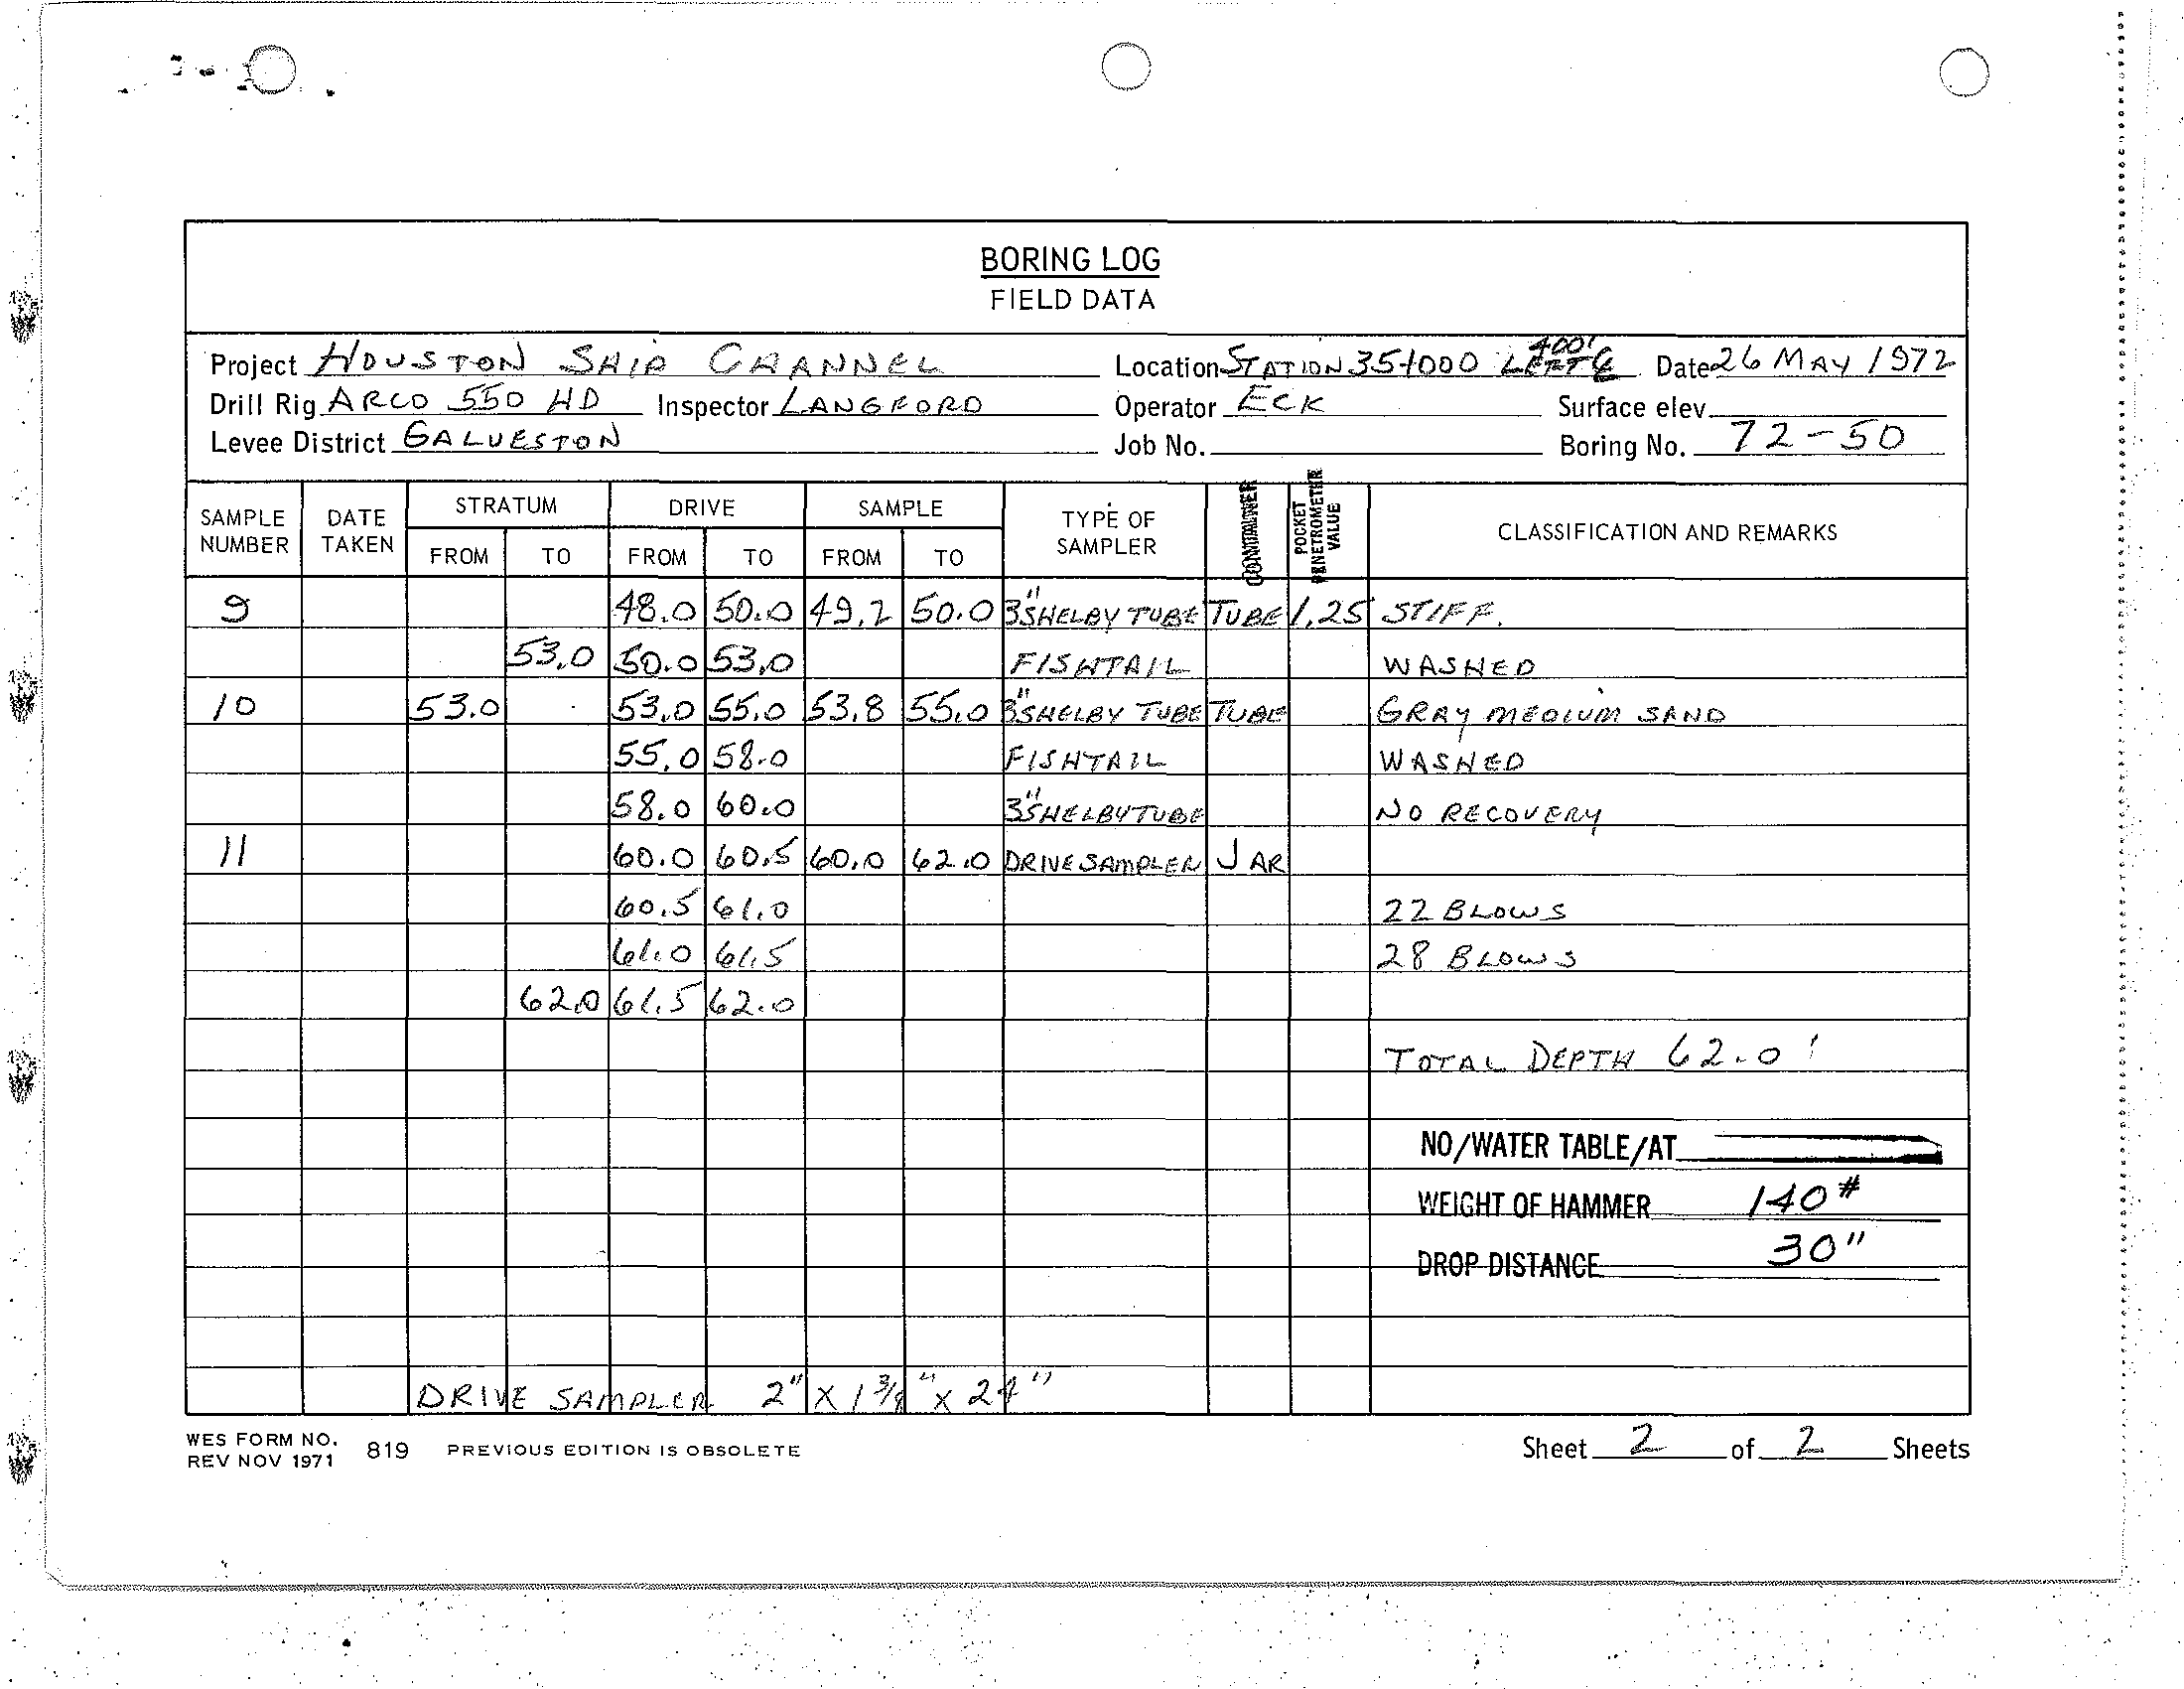 BORING LOG
FIELD DATA
Project HOUSTON SHIP CHANNEL Location STATION 35+000 400' LEFT ℄ Date 26 MAY 1972
Drill Rig ARCO 550 HD Inspector LANGFORD Operator ECK Surface elev.
Levee District GALVESTON Job No. Boring No. 72-50
SAMPLE NUMBER DATE TAKEN STRATUM DRIVE SAMPLE TYPE OF SAMPLER CONTAINER POCKET PENETROMETER VALUE CLASSIFICATION AND REMARKS
FROM TO FROM TO FROM TO
9 48.0 50.0 49.2 50.0 3" SHELBY TUBE TUBE 1.25 STIFF.
53.0 50.0 53.0 FISHTAIL WASHED
10 53.0 53.0 55.0 53.8 55.0 3" SHELBY TUBE TUBE GRAY MEDIUM SAND
55.0 58.0 FISHTAIL WASHED
58.0 60.0 3" SHELBY TUBE NO RECOVERY
11 60.0 60.5 60.0 62.0 DRIVE SAMPLER JAR
60.5 61.0 22 BLOWS
61.0 61.5 28 BLOWS
62.0 61.5 62.0
TOTAL DEPTH 62.0'
NO/WATER TABLE/AT
WEIGHT OF HAMMER 140#
DROP DISTANCE 30"
DRIVE SAMPLER 2" X 1 3/8" X 24"
WES FORM NO. 819 PREVIOUS EDITION IS OBSOLETE
REV NOV 1971
Sheet 2 of 2 Sheets